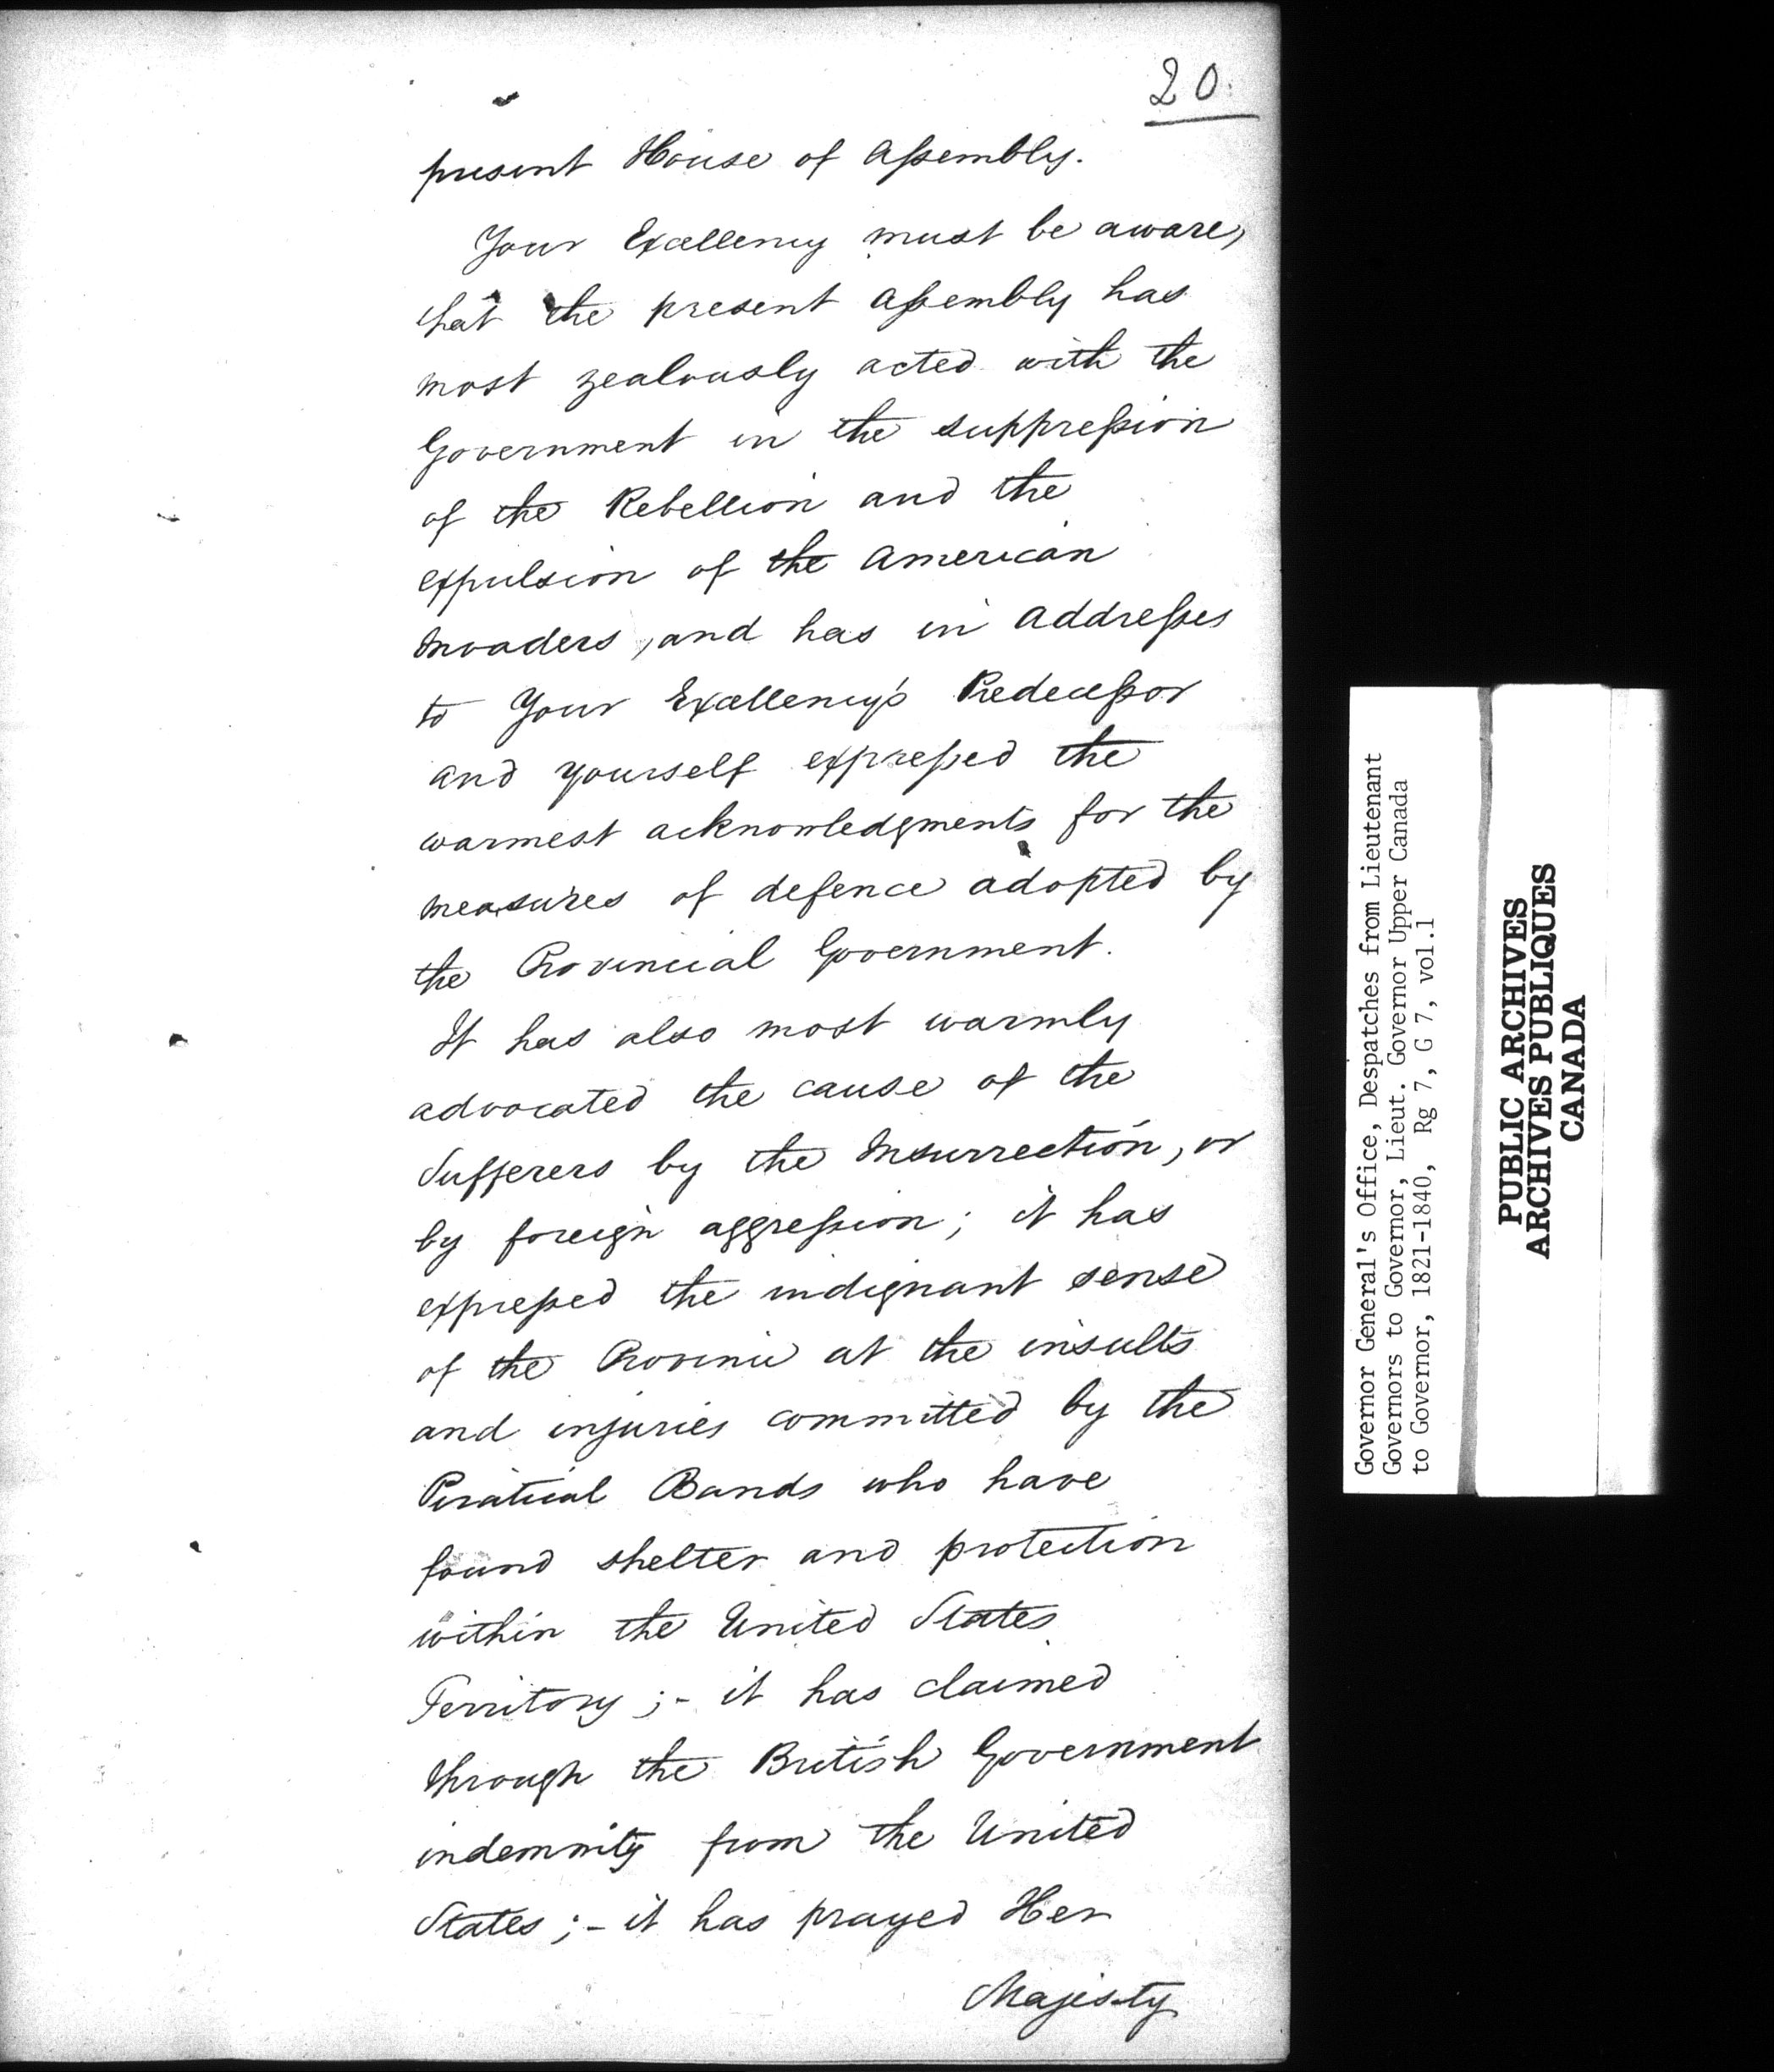 20.
present House of Assembly.
Your Excellency must be aware,
that the present Assembly has
most zealously acted with the
Government in the suppression
of the Rebellion and the
expulsion of the American
Invaders, and has in Addresses
to Your Excellency's Predecessor
and yourself expressed the
warmest acknowledgments for the
measures of defence adopted by
the Provincial Government.
It has also most warmly
advocated the cause of the
Sufferers by the Insurrection, or
by foreign aggression; it has
expressed the indignant sense
of the Province at the insults
and injuries committed by the
Piratical Bands who have
found shelter and protection
within the United States
Territory;- it has claimed
through the British Government
indemnity from the United
States;- it has prayed Her
Majesty
Governor General's Office, Despatches from Lieutenant
Governors to Governor, Lieut. Governor Upper Canada
to Governor, 1821-1840, Rg 7, G 7, vol.1
PUBLIC ARCHIVES
ARCHIVES PUBLIQUES
CANADA